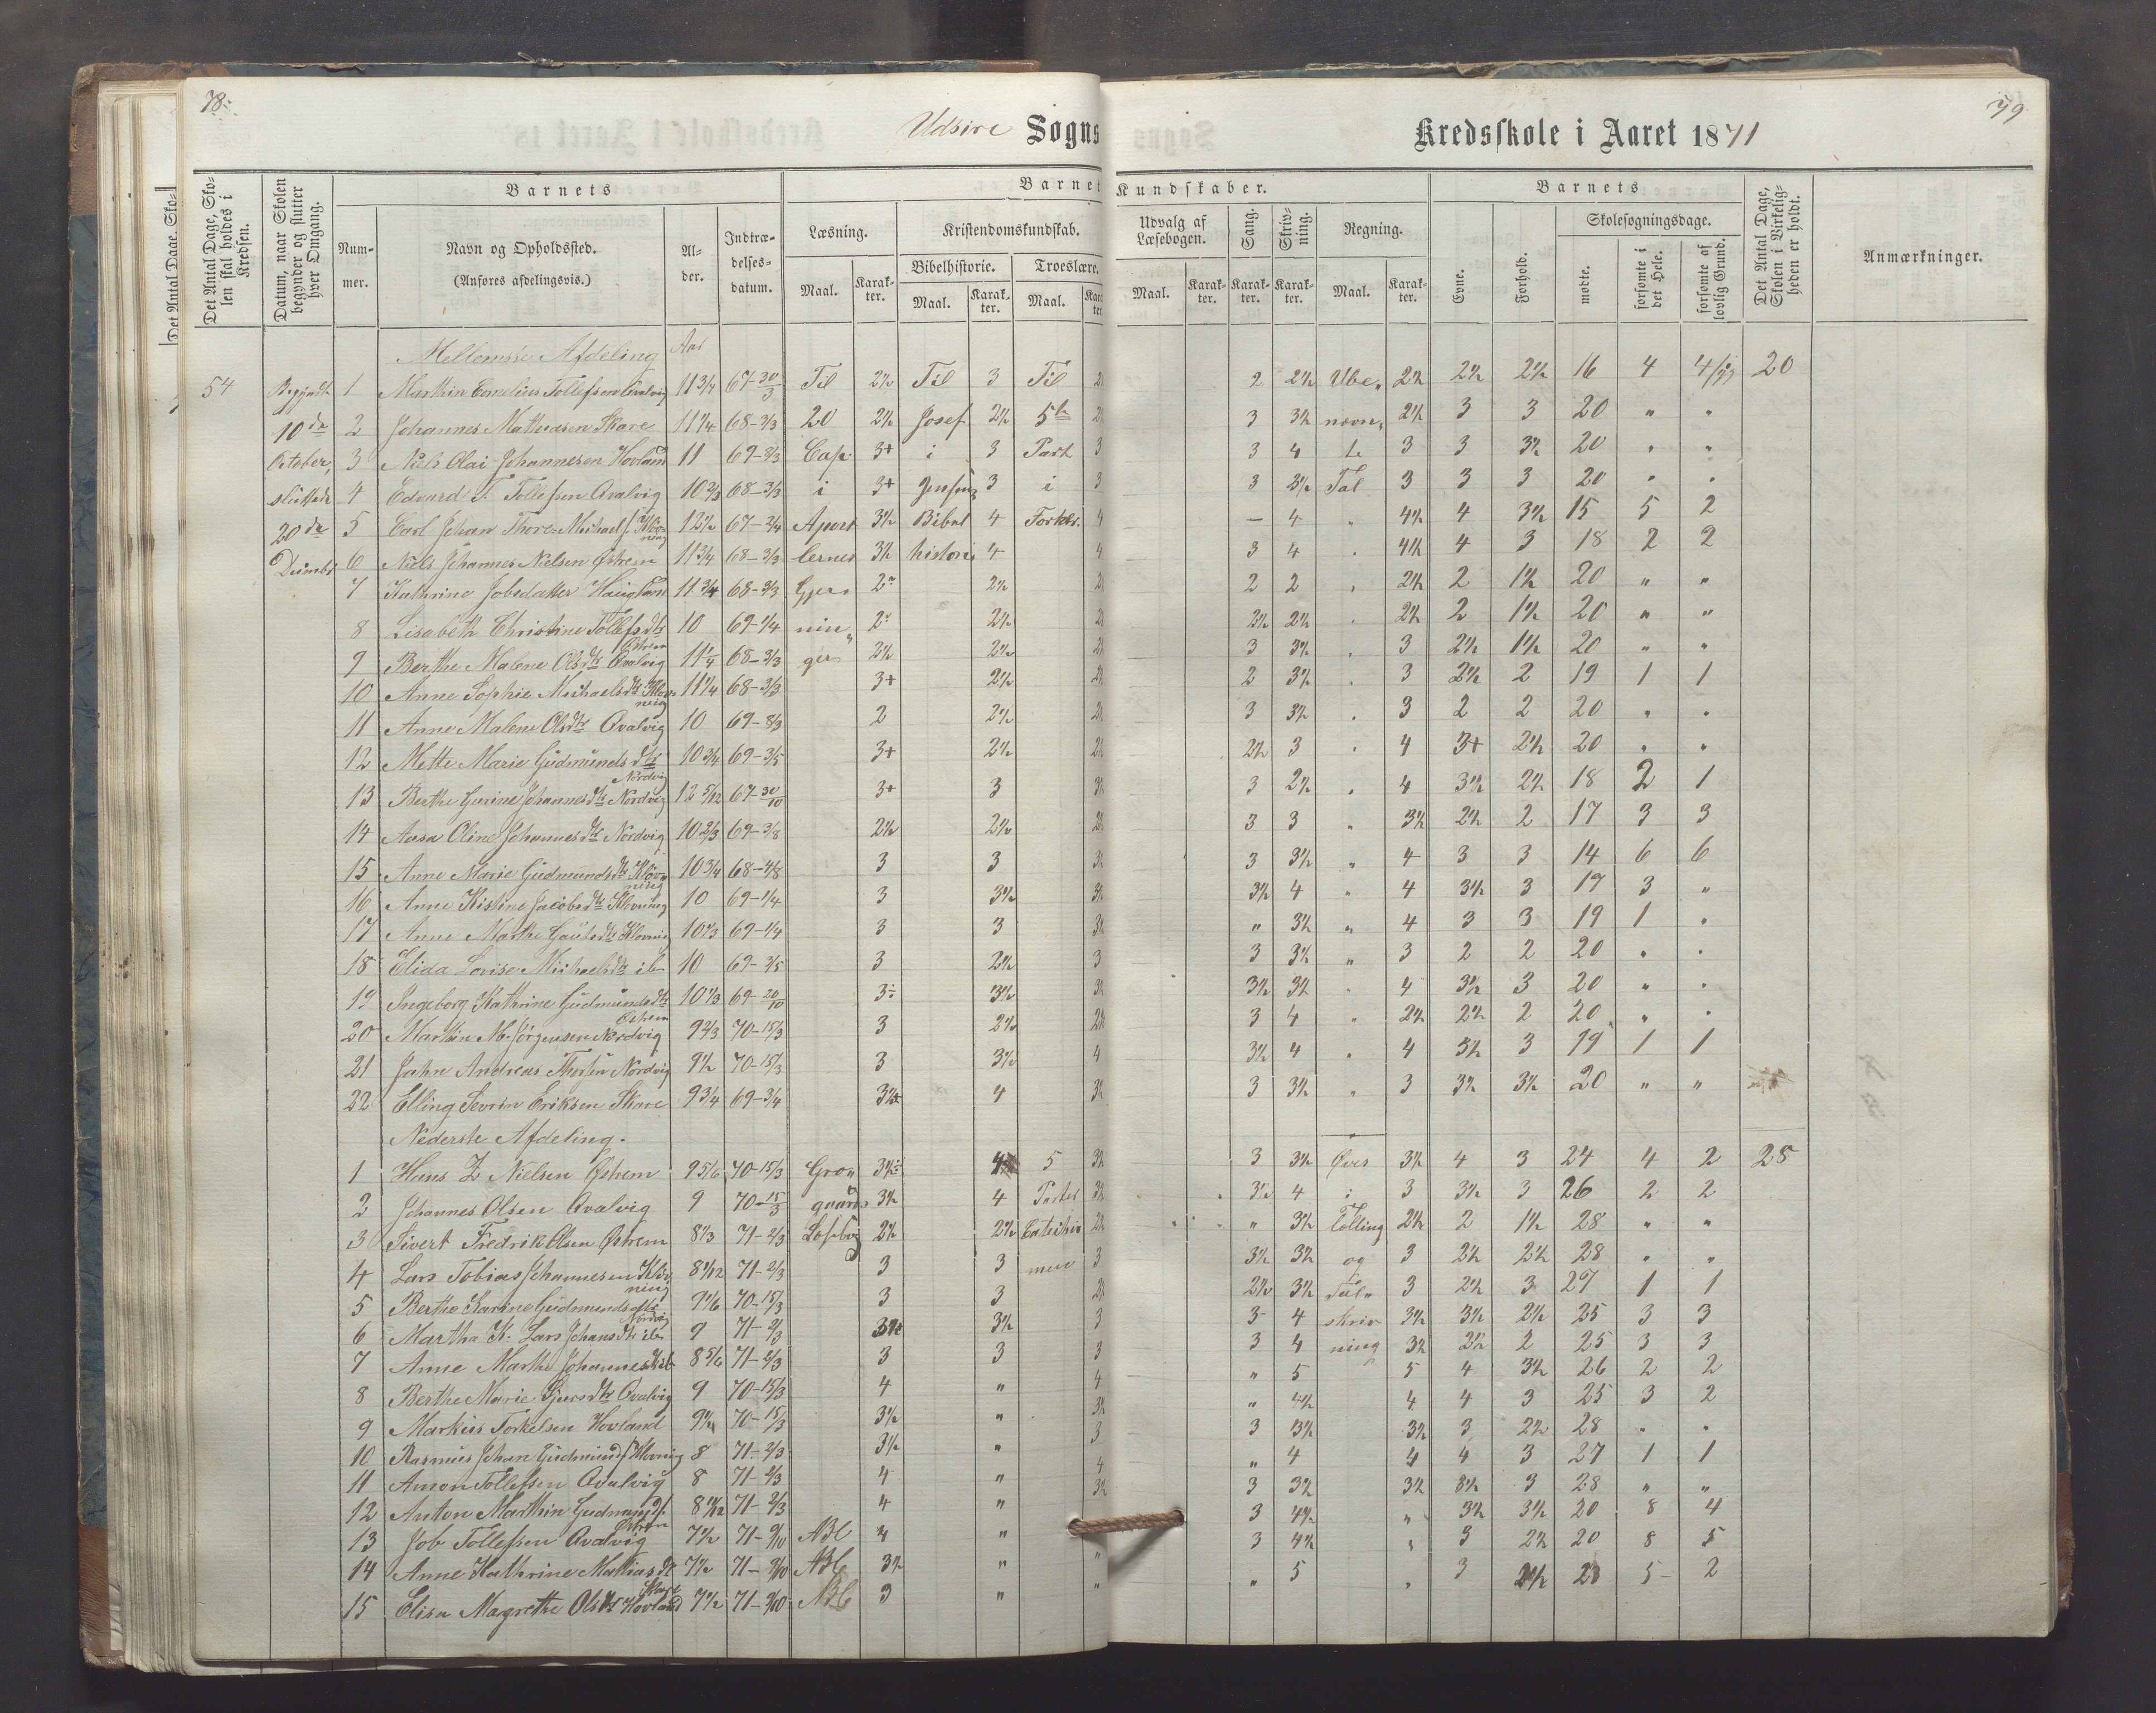 78.
Udsire Sogns
Kredsskole i Aaret 1871
79
Det Antal Dage, Skolen skal holdes i Kredsen.
Datum, naar Skolen begynder og slutter hver Omgang.
Barnets
Nummer.
Navn og Opholdssted.
(Anføres afdelingsvis.)
Alder.
Indtrædelsesdatum.
Barnets Kundskaber.
Læsning.
Kristendomskundskab.
Bibelhistorie.
Troeslære.
Maal.
Karakter.
Udvalg af Læsebogen.
Sang.
Skrivning.
Regning.
Barnets
Evne.
Forhold.
Skolesøgningsdage.
mødte.
forsømte i det Hele.
forsømte af lovlig Grund.
Det Antal Dage, Skolen i Virkeligheden er holdt.
Anmærkninger.
Mellemste Afdeling Aar
54 Begyndt 1 Marthin Cornelius Tollefsen Qvalvig 11 3/4 67-30/3 Til 2½ Til 3 Til 2 2½ Ube„ 2½ 2½ 2½ 16 4 20
10de 2 Johannes Mathiasen Skare 11 1/4 68-3/3 20 2½ Josef 2½ 5te 3 3½ 2½ 3 3 20 „ „
October, 3 Niels Olai Johannesen Hovland 11 69-8/3 Cap. 3+ i 3 Part 3 3 4 3 3 3½ 20 „ „
sluttede 4 Edvard T. Tollefsen Qvalvig 10 2/3 68-3/3 i 3+ 3 i 3 3 3½ Tal 3 3 3 20 „ „
20de 5 Carl Johan Thore Michaels. Klovning 12½ 67-2/4 Apost 3½ Bibel 4 Forklr. 4 – 4 „ 4½ 4 3½ 15 5 2
Decembr 6 Niels Johannes Nielsen Østrem 11 3/4 68-3/3 lernes 3½ historie 4 4 3 4 „ 4½ 4 3 18 2 2
7 Kathrine Jobsdatter Haugland 11 3/4 68-3/3 Gjer„ 2 2½ 2 2 „ 2½ 2 1½ 20 „ „
8 Lisabeth Christine Tollefsdtr Østrem 10 69-1/4 nin„ 2 2½ 2½ 2½ „ 2½ 2 1½ 20 „ „
9 Berthe Malene Olsdtr Qvalvig 11 1/4 68-3/3 ger 2½ 2½ 3 3½ „ 3 2½ 1½ 20 „ „
10 Anne Sophie Michaelsdtr Klovning 11 1/4 68-3/3 3+ 2½ 2 3½ „ 3 2½ 2 19 1 1
11 Anne Malene Olsdtr Qvalvig 10 69-8/3 2 2½ 3 3½ „ 3 2 2 20 „ „
12 Mette Marie Gudmundsdtr Nordvig 10 3/4 69-3/5 3+ 2½ 2½ 3 „ 4 3+ 2½ 20 „ „
13 Berthe Gurine Johannesdtr Nordvig 12 5/12 67-30/10 3+ 3 3½ 3 2½ „ 4 3½ 2½ 18 2 1
14 Aasa Oline Johannesdtr Nordvig 10 2/3 69-3/8 2½ 2½ 3 3 „ 3½ 2½ 2 17 3 3
15 Anne Marie Gudmundsdtr Klovning 10 3/4 68-4/8 3 3 3½ 3 3½ „ 4 3 3 14 6 6
16 Anne Kistine Jacobsdtr Klovning 10 69-1/4 3 3½ 3½ 3½ 4 „ 4 3½ 3 17 3 „
17 Anne Marthe Gautsdtr Klovning 10 1/3 69-1/4 3 3 3½ „ 3½ „ 4 3 3 19 1 „
18 Elida Lovise Michaelsdtr ib 10 69-3/5 3 2½ 3 3 3½ „ 3 2 2 20 „ „
19 Ingeborg Kathrine Gudmundsdtr Østrem 10 1/3 69-20/10 3÷ 3½ 3½ 3½ 3½ „ 4 3½ 3 20 „ „
20 Marthin M. Jørgensen Nordvig 9 2/3 70-15/3 3 2½ 2½ 3 4 „ 2½ 2½ 2 20 „ „
21 John Andreas Thorsen Nordvig 9½ 70-15/3 3 3½ 4 3½ 4 „ 4 3½ 3 19 1 1
22 Elling Sevrin Eriksen Skare 9 3/4 69-3/4 3½ 4 3½ 3 3½ „ 3 3½ 3½ 20 „ „
Nederste Afdeling.
1 Hans Z Nielsen Østrem 9 5/6 70-15/3 Gro„ 3½ 4 5 3½ 3 3½ Øves 3½ 4 3 24 4 2 28
2 Johannes Olsen Qvalvig 9 70-15/3 gaards 3½ 4 Parter 3½ 3½ 4 i 3 3½ 3 26 2 2
3 Sivert Fredrik Olsen Østrem 8 1/3 71-2/3 Læsebog 2½ 2½ Catechis 2½ „ 3½ Tælling 2½ 2 1½ 28 „ „
4 Lars Tobias Johannesen Klovning 71-2/3 3 3 men 3 3½ 3½ og 3 2½ 2½ 28 „ „
5 Berthe Karine Gudmundsdtr Nordvig 9 1/6 70-15/3 3 3 2½ 2½ 3½ Tal„ 3 2½ 3 27 1 1
6 Martha K. Lars Johansdtr ib 9 71-2/3 3½ 3½ 3 3 4 skriv 3½ 3½ 2½ 25 3 3
7 Anne Marthe Johannesdtr ib 8 5/6 71-2/3 3 3 3 3 4 ning 3½ 2½ 2 25 3 3
8 Berthe Marie Sjursdtr Qvalvig 9 70-15/3 4 „ 4 „ 5 5 4 3½ 26 2 2
9 Markus Torkelsen Hovland 9 1/4 70-15/3 3½ „ 3½ „ 4½ 4 4 3 25 3 2
10 Rasmus Johan Gudmunds. Klovning 8 71-2/3 3½ „ 3 3 3½ 3½ 3 2½ 28 „ „
11 Amon Tollefsen Qvalvig 8 71-2/3 4 „ 4 „ 4 4 4 3 27 1 1
12 Anton Marthin Gudmunds. Østrem 71-2/3 4 „ 3½ 3 3½ 3½ 3½ 3 28 „ „
13 Job Tollefsen Qvalvig 7½ 71-9/10 ABC 4 „ 3 4½ „ 3½ 3½ 20 8 4
14 Anne Kathrine Mathiasdtr Skare 7½ 71-9/10 ABC 3½ „ „ 3 4½ „ 3 2½ 20 8 5
15 Elisa Magrethe Olsdtr Hovland 7½ 71-9/10 ABC 3 „ „ „ 5 „ 3 2½ 23 5 2